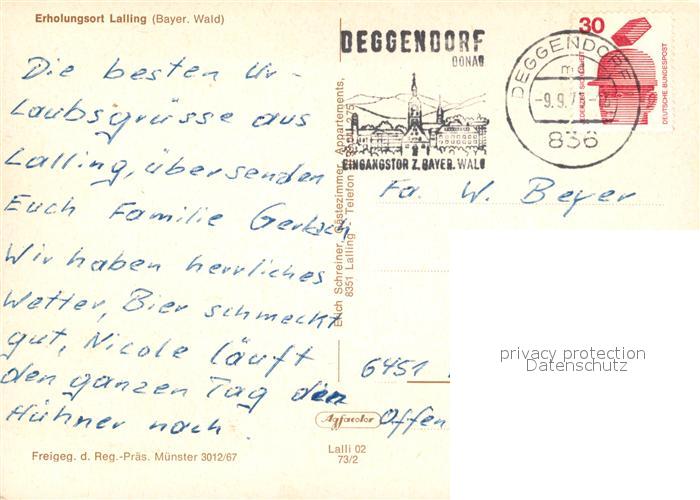 Erholungsort Lalling (Bayer. Wald)
Die besten Ur-
laubsgrüsse aus
Lalling, übersenden
Euch Familie
Wir haben herrliches
Wetter, Bier schmeckt
gut, Nicole läuft
den ganzen Tag den
Hühner nach.
Freigeg. d. Reg.-Präs. Münster 3012/67
Erich Schreiner, Gästezimmer, Appartements,
8351 Lalling
Telefon
DEGGENDORF
DONAU
EINGANGSTOR Z. BAYER. WALD
DEGGENDORF
-9.9.7
836
30
JEDERZEIT SICHERHEIT
DEUTSCHE BUNDESPOST
Fa. W. Beyer
6451
Offen
Agfacolor
Lalli 02
73/2
privacy protection
Datenschutz